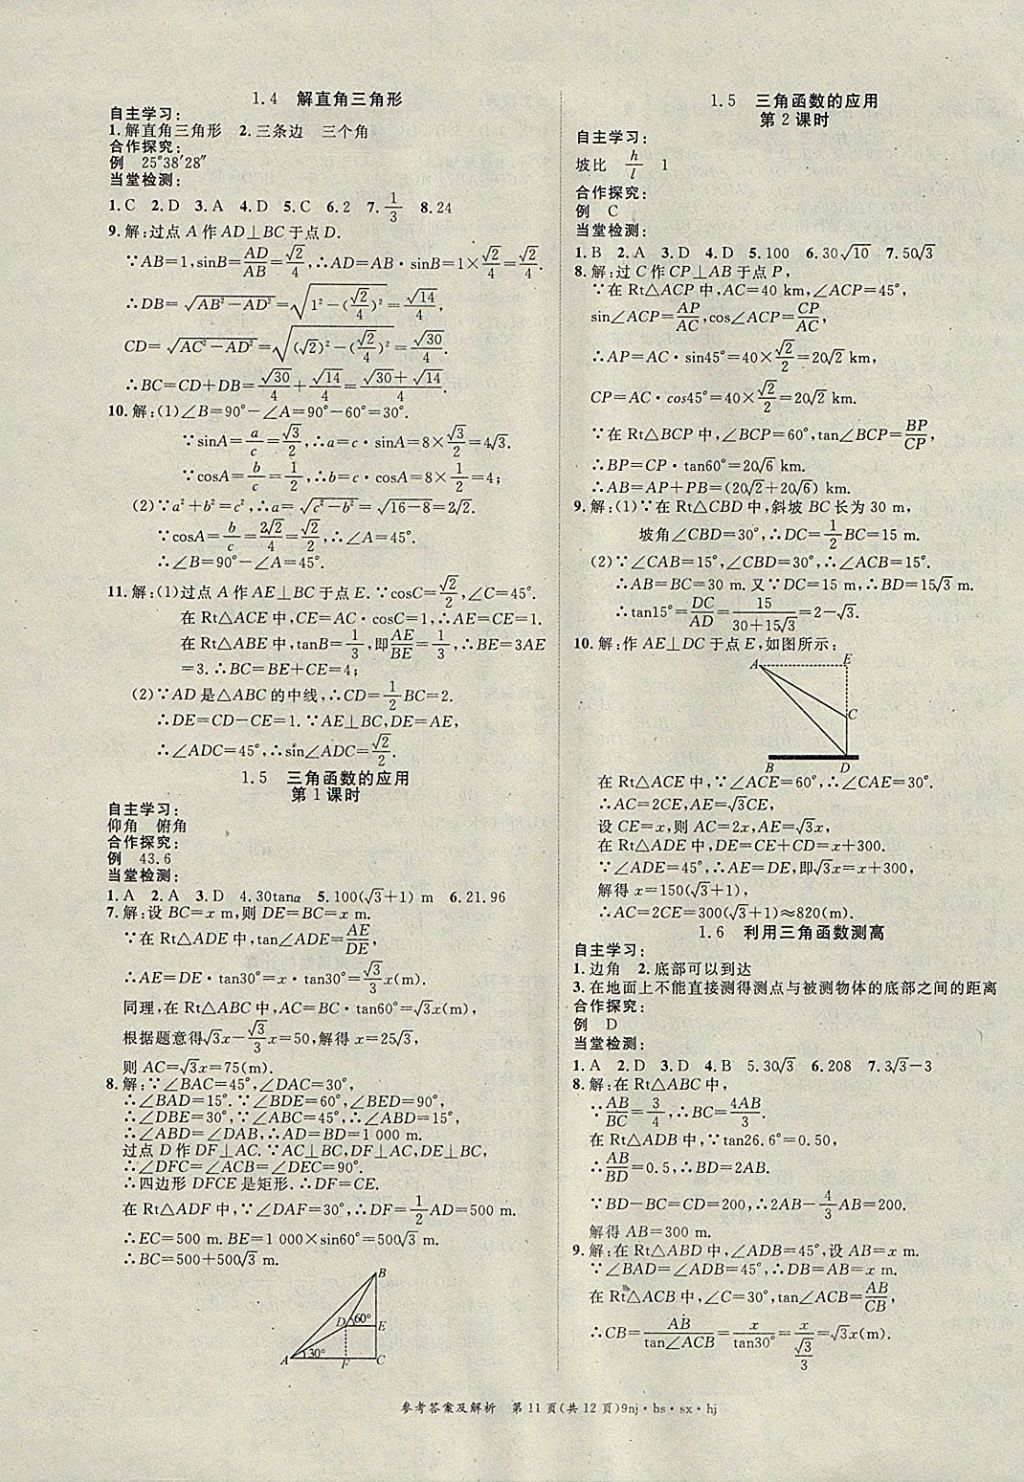 1.4 解直角三角形
自主学习:
1.解直角三角形 2.三条边 三个角
合作探究:
例 25°38′28″
当堂检测:
1.C 2.D 3.A 4.D 5.C 6.2 7.1/3 8.24
9.解:过点A作AD⊥BC于点D.
∵AB=1,sinB=AD/AB=√2/4,∴AD=AB·sinB=1×√2/4=√2/4.
∴DB=√(AB²-AD²)=√(1²-(√2/4)²)=√14/4,
CD=√(AC²-AD²)=√((√2)²-(√2/4)²)=√30/4.
∴BC=CD+DB=√30/4+√14/4=(√30+√14)/4.
10.解:(1)∠B=90°-∠A=90°-60°=30°.
∵sinA=a/c=√3/2,∴a=c·sinA=8×√3/2=4√3.
∵cosA=b/c=1/2,∴b=c·cosA=8×1/2=4;
(2)∵a²+b²=c²,∴a=√(c²-b²)=√(16-8)=2√2.
∵cosA=b/c=2√2/4=√2/2,∴∠A=45°.
∴∠B=90°-∠A=45°.
11.解:(1)过点A作AE⊥BC于点E.∵cosC=√2/2,∠C=45°.
在Rt△ACE中,CE=AC·cosC=1,∴AE=CE=1.
在Rt△ABE中,tanB=1/3,即AE/BE=1/3,∴BE=3AE
=3.∴BC=BE+CE=4;
(2)∵AD是△ABC的中线,∴CD=1/2BC=2.
∴DE=CD-CE=1.∵AE⊥BC,DE=AE,
∴∠ADC=45°,∴sin∠ADC=√2/2.
1.5 三角函数的应用
第1课时
自主学习:
仰角 俯角
合作探究:
例 43.6
当堂检测:
1.A 2.A 3.D 4.30tanα 5.100(√3+1) m 6.21.96
7.解:设BC=x m,则DE=BC=x m.
∵在Rt△ADE中,tan∠ADE=AE/DE,
∴AE=DE·tan30°=x·tan30°=√3/3x(m).
同理,在Rt△ABC中,AC=BC·tan60°=√3x(m),
根据题意得√3x-√3/3x=50,解得x=25√3,
则AC=√3x=75(m).
8.解:∵∠BAC=45°,∠DAC=30°,
∴∠BAD=15°.∵∠BDE=60°,∠BED=90°,
∴∠DBE=30°,∵∠ABC=45°,∴∠ABD=15°,
∴∠ABD=∠DAB,∴AD=BD=1 000 m.
过点D作DF⊥AC.∵AC⊥BC,DF⊥AC,DE⊥BC,
∴∠DFC=∠ACB=∠DEC=90°.
∴四边形DFCE是矩形.∴DF=CE.
在Rt△ADF中,∵∠DAF=30°,∴DF=1/2AD=500 m.
∴EC=500 m.BE=1 000×sin60°=500√3 m.
∴BC=500+500√3 m.
B
D 60° E
A 30° F C
1.5 三角函数的应用
第2课时
自主学习:
坡比 h/l 1
合作探究:
例 C
当堂检测:
1.B 2.A 3.D 4.D 5.100 6.30√10 7.50√3
8.解:过C作CP⊥AB于点P,
∵在Rt△ACP中,AC=40 km,∠ACP=45°,
sin∠ACP=AP/AC,cos∠ACP=CP/AC,
∴AP=AC·sin45°=40×√2/2=20√2 km.
CP=AC·cos45°=40×√2/2=20√2 km.
∵在Rt△BCP中,∠BCP=60°,tan∠BCP=BP/CP,
∴BP=CP·tan60°=20√6 km.
∴AB=AP+PB=(20√2+20√6) km.
9.解:(1)∵在Rt△CBD中,斜坡BC长为30 m,
坡角∠CBD=30°,∴DC=1/2BC=15 m.
(2)∵∠CAB=15°,∠CBD=30°,∴∠ACB=15°.
∴AB=BC=30 m.又∵DC=15 m,∴BD=15√3 m.
∴tan15°=DC/AD=15/(30+15√3)=2-√3.
10.解:作AE⊥DC于点E,如图所示:
A E
C
B D
在Rt△ACE中,∵∠ACE=60°,∴∠CAE=30°.
∴AC=2CE,AE=√3CE,
设CE=x,则AC=2x,AE=√3x,
在Rt△ADE中,DE=CE+CD=x+300.
∵∠ADE=45°,∴AE=DE,即√3x=x+300,
解得x=150(√3+1),
∴AC=2CE=300(√3+1)≈820(m).
1.6 利用三角函数测高
自主学习:
1.边角 2.底部可以到达
3.在地面上不能直接测得测点与被测物体的底部之间的距离
合作探究:
例 D
当堂检测:
1.A 2.D 3.D 4.B 5.30√3 6.208 7.3√3-3
8.解:在Rt△ABC中,
∵AB/BC=3/4,∴BC=4AB/3.
在Rt△ADB中,∵tan26.6°=0.50,
∴AB/BD=0.5,∴BD=2AB.
∵BD-BC=CD=200,∴2AB-4/3AB=200,
解得AB=300 m.
9.解:在Rt△ABD中,∠ADB=45°,设AB=x m.
∵∠BAD=∠ADB=45°,∴DB=AB=x m.
在Rt△ACB中,∠C=30°,tan∠ACB=AB/CB,
∴CB=AB/tan∠ACB=x/tan30°=x/(√3/3)=√3x(m).
参考答案及解析 第11页(共12页)9nj·bs·sx·hj